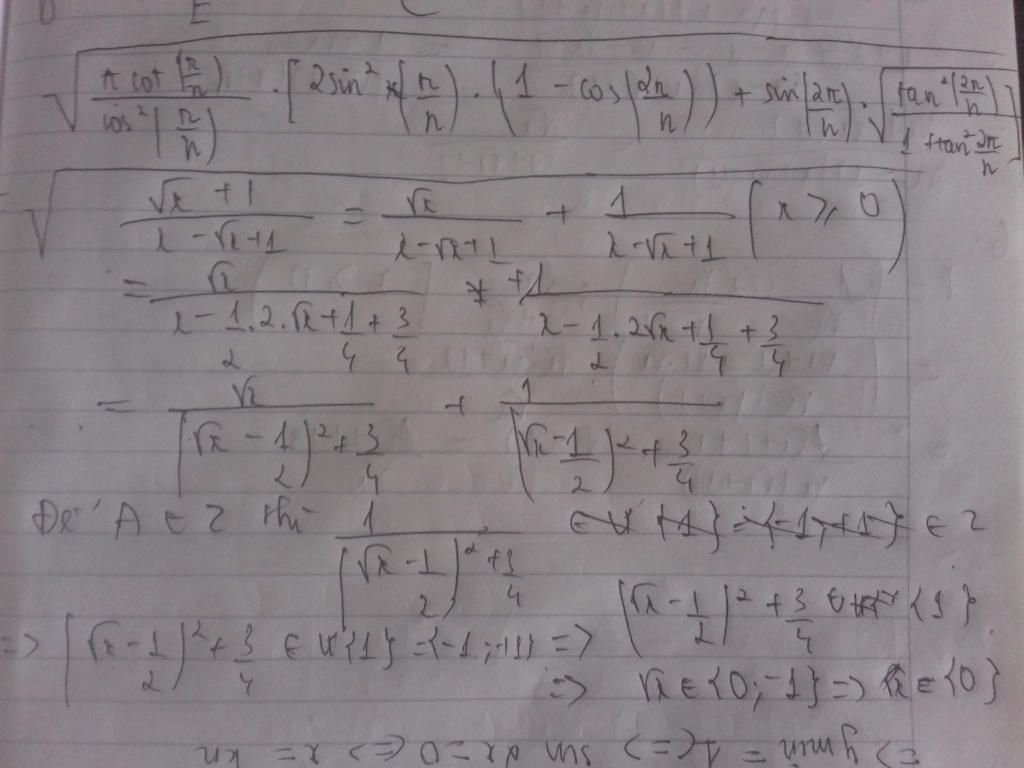 E C
√( π cot(π/n) / cos²(π/n) · [2sin²(π/n) · (1 - cos(2π/n)) + sin(2π/n) · √( tan²(2π/n) / 1 + tan² 2π/n )] )
√ (√x + 1)/(x - √x + 1) = √x/(x - √x + 1) + 1/(x - √x + 1) (x ≥ 0)
= √x/(x - 1/2 . 2 . √x + 1/4 + 3/4) + 1/(x - 1/2 . 2√x + 1/4 + 3/4)
= √x/((√x - 1/2)² + 3/4) + 1/((√x - 1/2)² + 3/4)
Để A ∈ Z thì 1/((√x - 1/2)² + 3/4) ∈ Ư{1} = {-1; +1} ∈ Z
(√x - 1/2)² + 3/4 {1}
=> (√x - 1/2)² + 3/4 ∈ Ư{1} = {-1; +1} =>
=> √x ∈ {0; -1} => x ∈ {0}
=> ymin = 1 <=> sin 2x = 0 <=> x = kπ